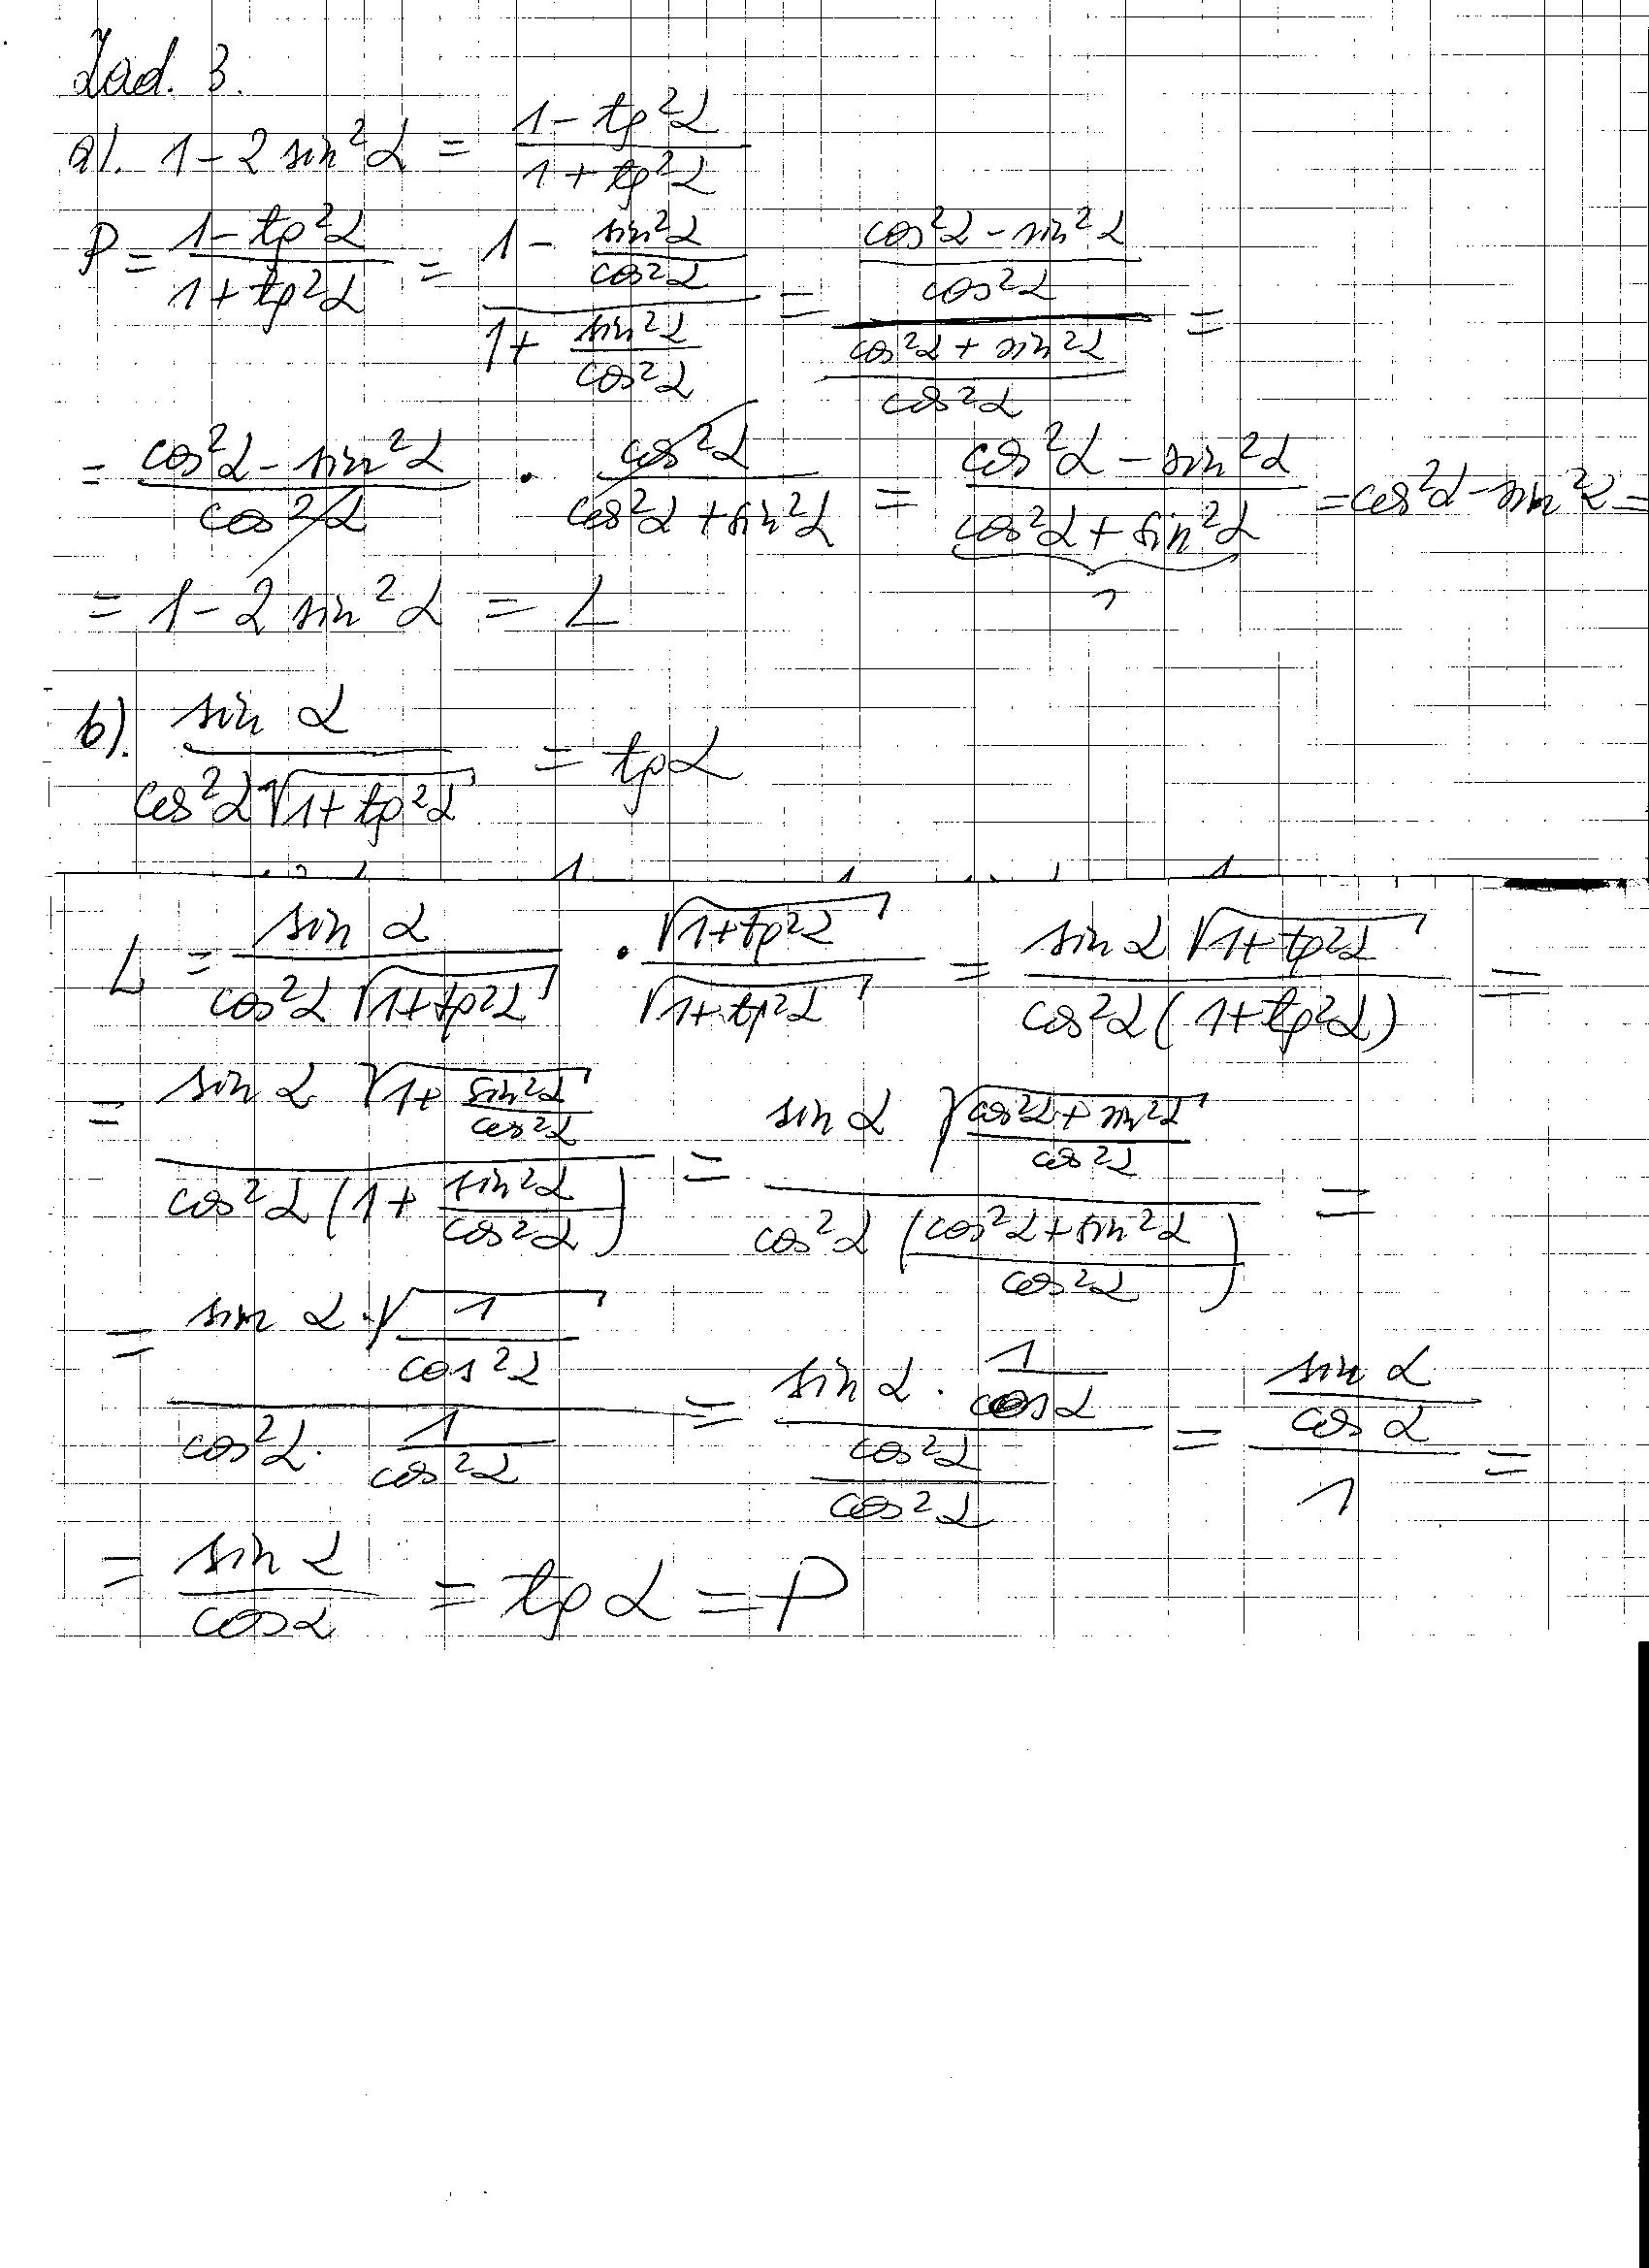 Zad. 3.
a). 1 - 2 sin²α = (1 - tg²α)/(1 + tg²α)
P = (1 - tg²α)/(1 + tg²α) = (1 - sin²α/cos²α)/(1 + sin²α/cos²α) = ((cos²α - sin²α)/cos²α)/((cos²α + sin²α)/cos²α) =
= (cos²α - sin²α)/cos²α · cos²α/(cos²α + sin²α) = (cos²α - sin²α)/(cos²α + sin²α) = cos²α - sin²α =
1
= 1 - 2 sin²α = L
b). sin α/(cos²α √(1 + tg²α)) = tgα
L = sin α/(cos²α √(1+tg²α)) · √(1+tg²α)/√(1+tg²α) = sin α √(1+tg²α)/(cos²α (1+tg²α)) =
= sin α √(1 + sin²α/cos²α)/(cos²α (1 + sin²α/cos²α)) = sin α √((cos²α + sin²α)/cos²α)/(cos²α ((cos²α + sin²α)/cos²α)) =
= sin α · √(1/cos²α)/(cos²α · 1/cos²α) = (sin α · 1/cosα)/(cos²α/cos²α) = (sin α/cos α)/1 =
= sin α/cosα = tg α = P